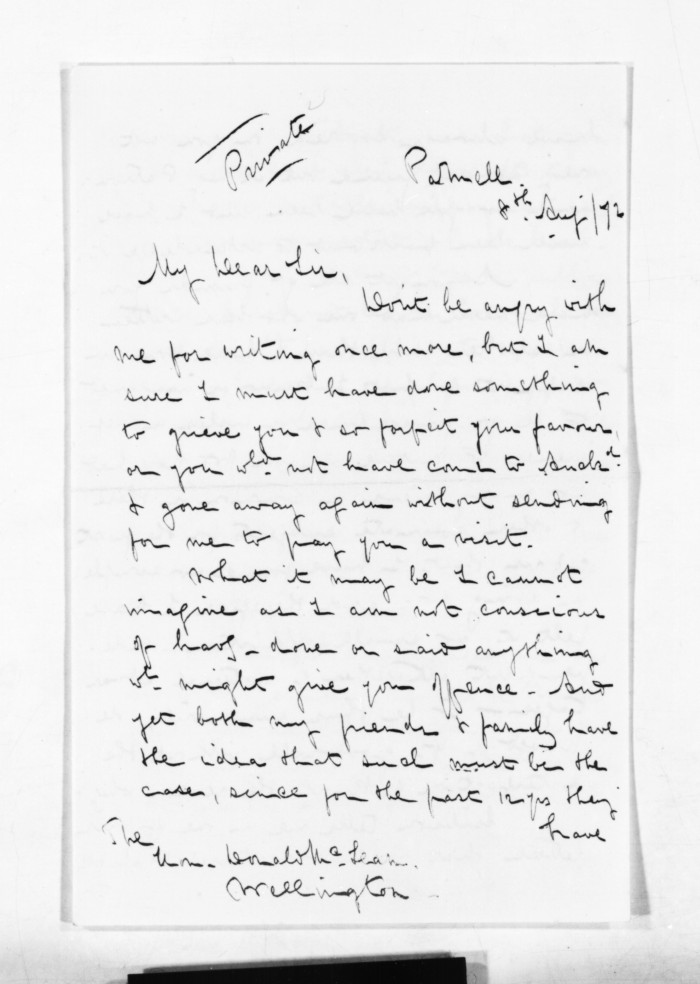 Private
Parnell.
8th Aug/72
My Dear Sir,
Don't be angry with
me for writing once more, but I am
sure I must have done something
to grieve you & so forfeit your favour,
or you wld not have come to Auckd
& gone away again without sending
for me to pay you a visit.
What it may be I cannot
imagine as I am not conscious
of havg - done or said anything
wh might give you offence - And
yet both my friends & family have
the idea that such must be the
case, since for the past 12 yrs they
have
The
Hon. Donald McLean.
Wellington